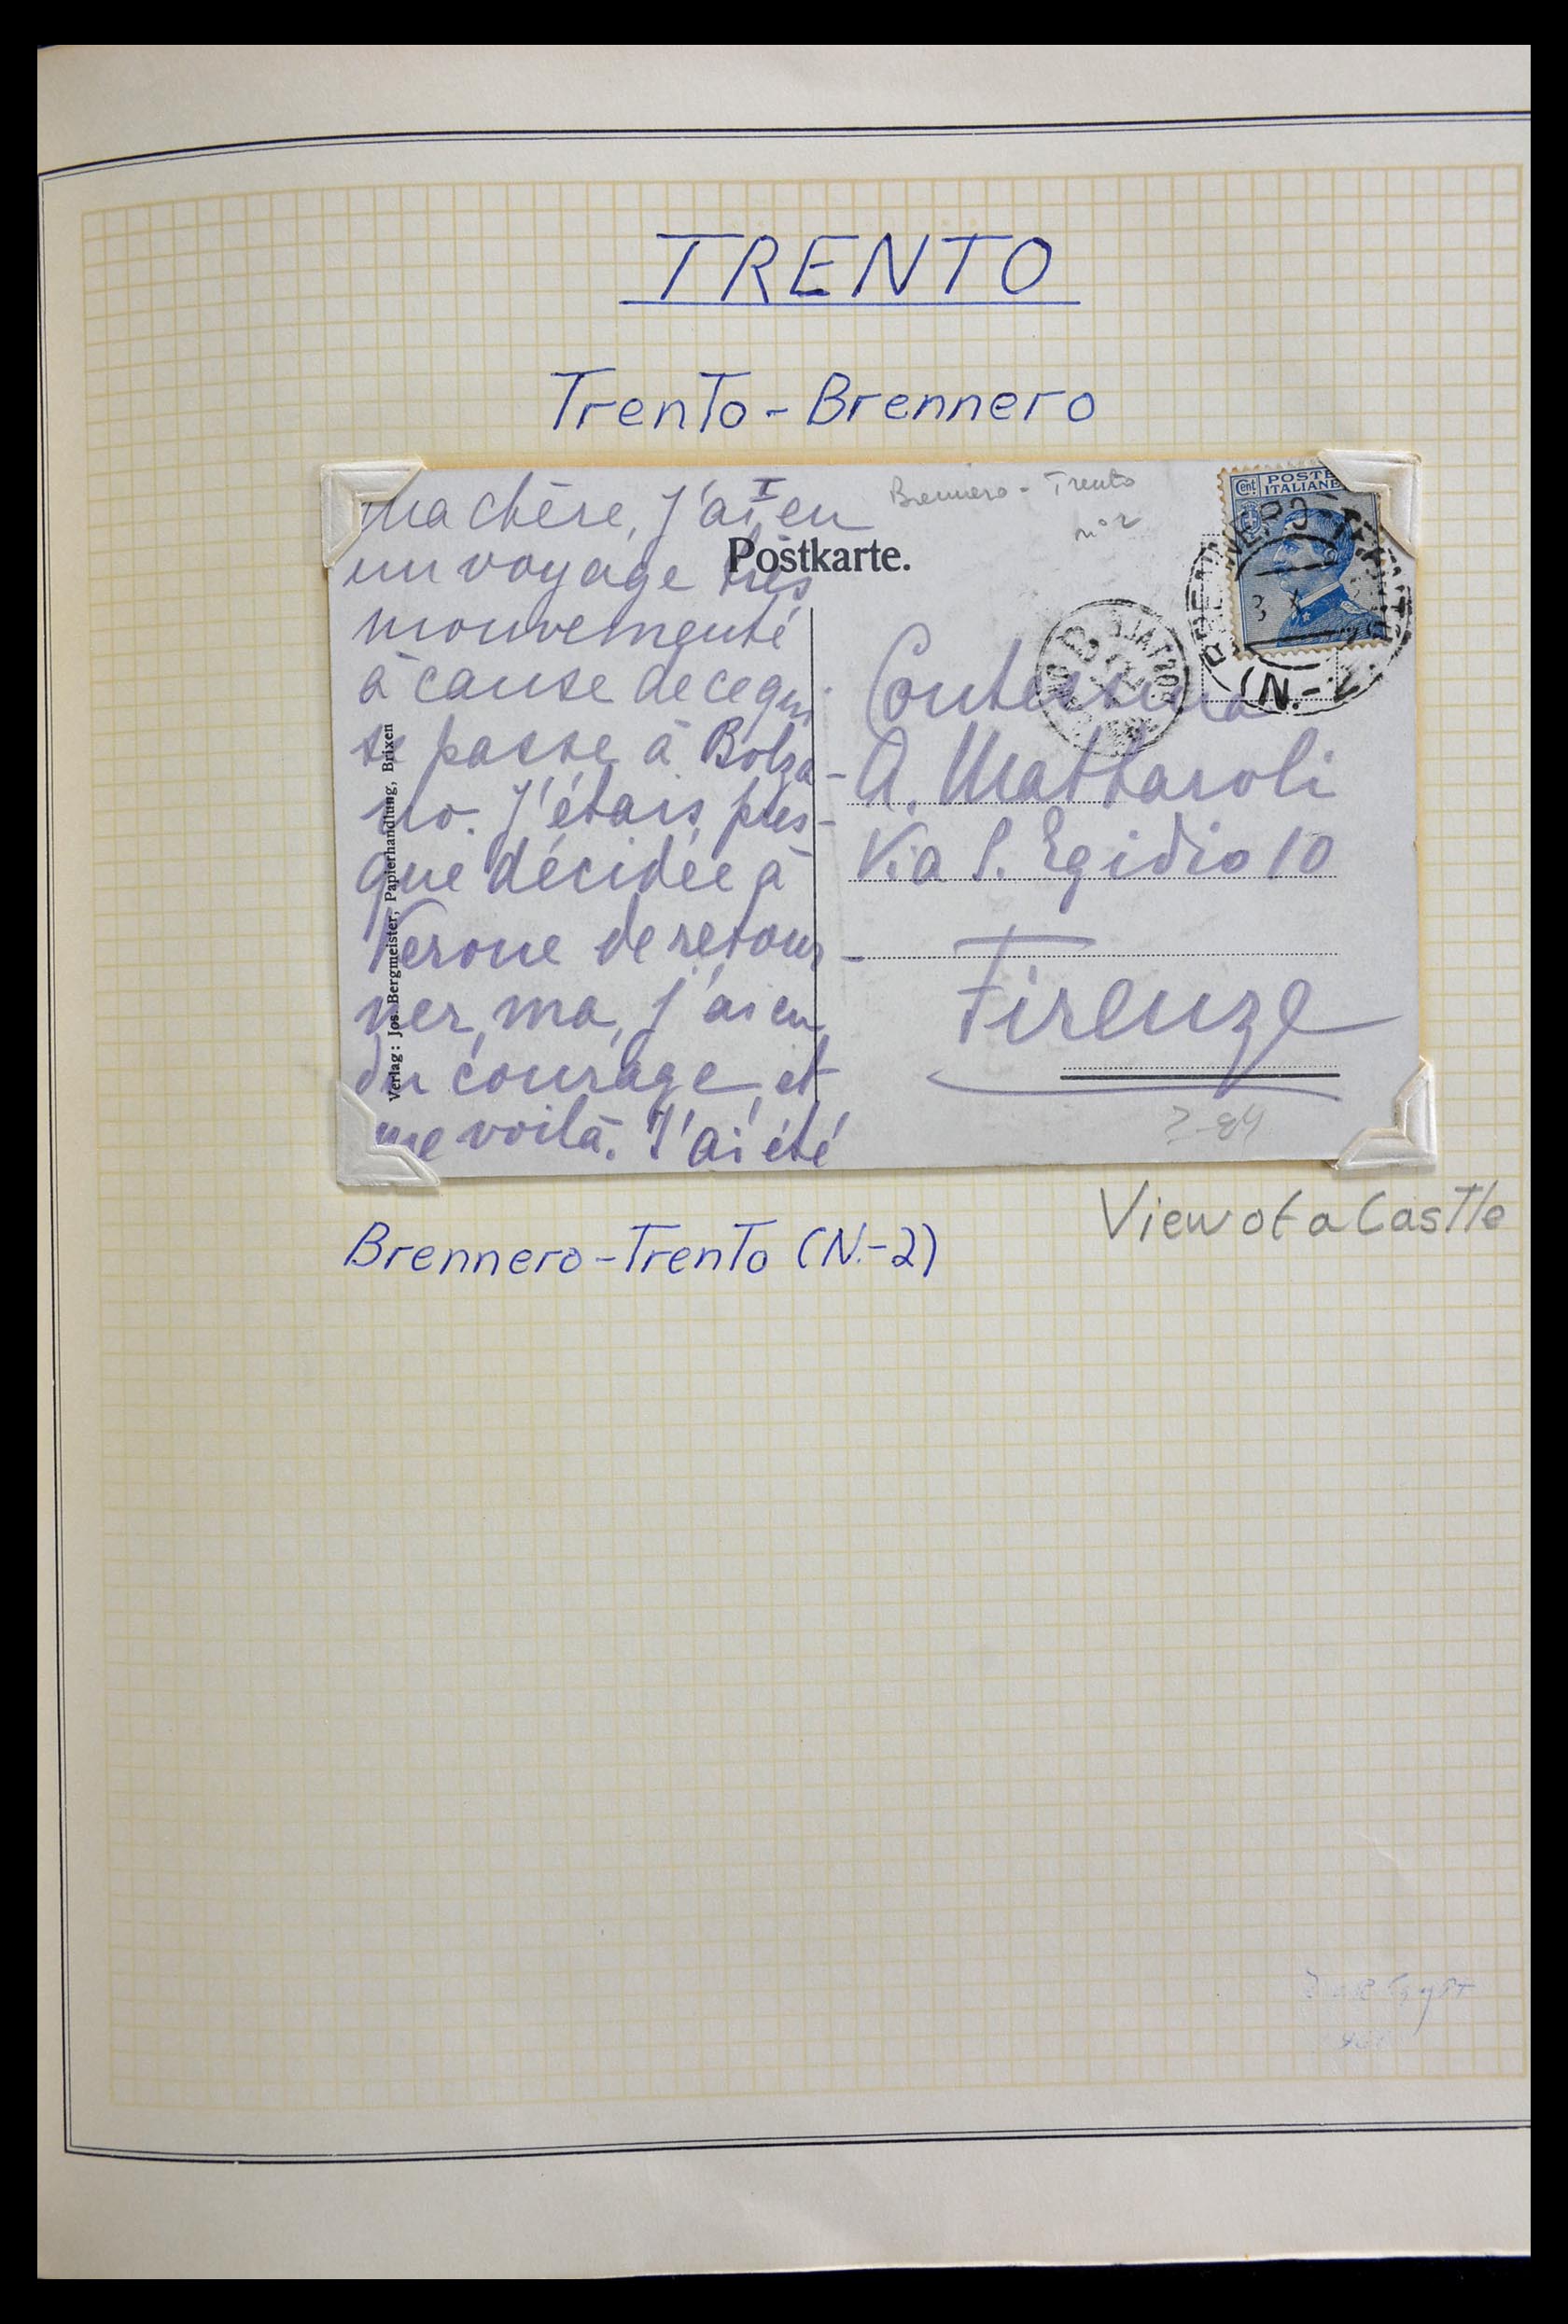 TRENTO
Trento-Brennero
I
Ma chère, j'ai eu
un voyage très
mouvementé
à cause de ce qui
se passe à Bolza-
no. J'étais pres-
que décidée à
Verone de retour-
ner, ma, j'ai eu
du courage, et
me voilà. J'ai été
Verlag: Jos. Bergmeister, Papierhandlung, Brixen
Postkarte.
Brennero - Trento
n° 2
Cent.
POSTE
ITALIANE
BRENNERO-TRENTO
(N.-2)
Contessina
A. Mattaroli
Via S. Egidio 10
Firenze
Brennero-Trento (N.-2)
View of a Castle